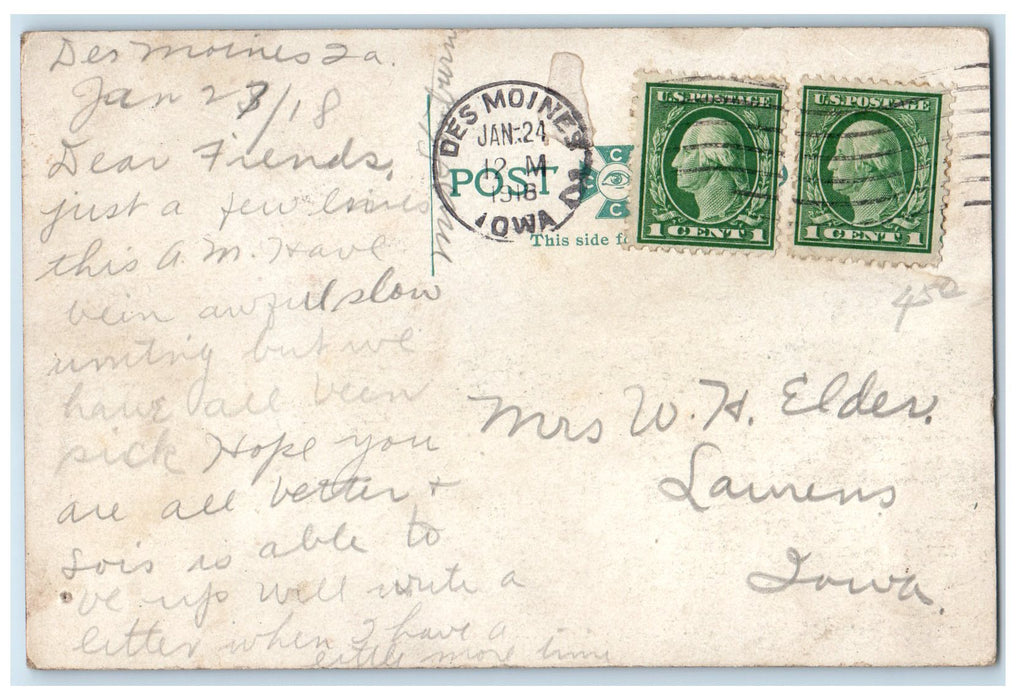 Des Moines Ia.
Jan 23/18
Dear Fiends,
just a few lines
this A.M. Have
bein awful slow
writing but we
have all been
sick Hope you
are all better +
Lois is able to
be up will write a
letter when I have a
little more time
DES MOINES
JAN 24
12 M
1918
IOWA
POST
C
C
This side fo
U.S.POSTAGE
1 CENT 1
U.S.POSTAGE
1 CENT 1
450
Mrs W. H. Elder.
Laurens
Iowa.